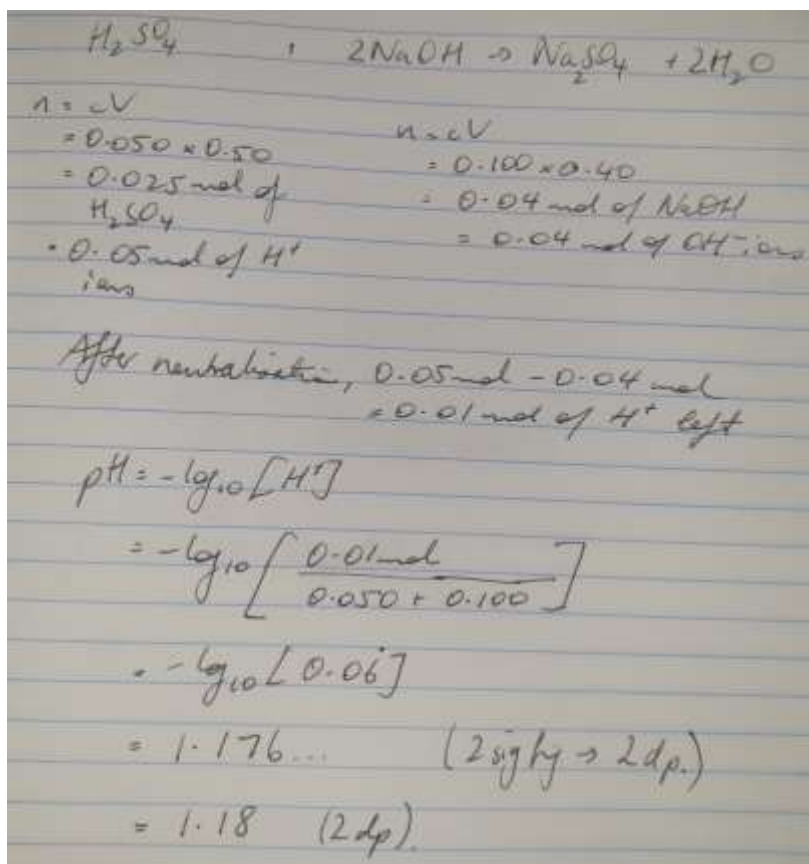 H₂SO₄ + 2NaOH → Na₂SO₄ + 2H₂O
n = cV
= 0.050 × 0.50
= 0.025 mol of
H₂SO₄
= 0.05 mol of H⁺
ions
n = cV
= 0.100 × 0.40
= 0.04 mol of NaOH
= 0.04 mol of OH⁻ ions
After neutralisation, 0.05 mol - 0.04 mol
= 0.01 mol of H⁺ left
pH = -log₁₀[H⁺]
= -log₁₀[0.01 mol / 0.050 + 0.100]
= -log₁₀[0.06̇]
= 1.176... (2 sig fig → 2 dp.)
= 1.18 (2 dp).